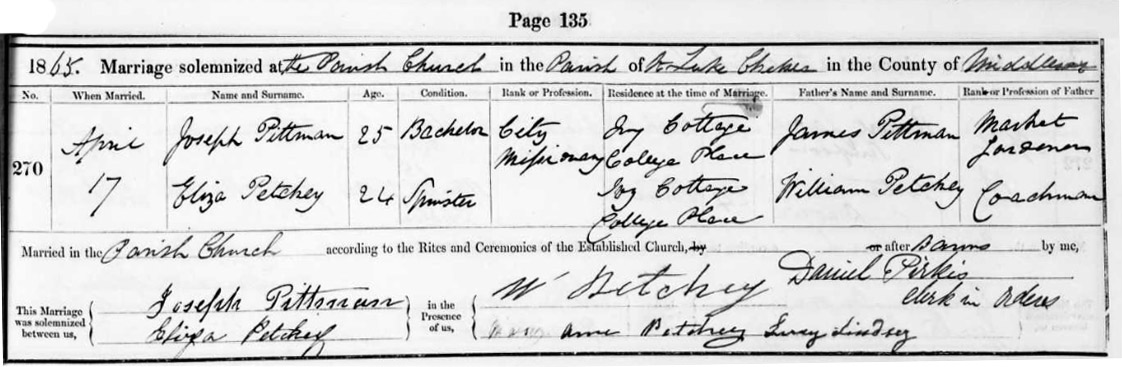 Page 135
1865. Marriage solemnized at the Parish Church in the Parish of St Luke Chelsea in the County of Middlesex
No. When Married. Name and Surname. Age. Condition. Rank or Profession. Residence at the time of Marriage. Father's Name and Surname. Rank or Profession of Father
270 April Joseph Pittman 25 Bachelor City Missionary Ivy Cottage College Place James Pittman Market Gardener
17 Eliza Petchey 24 Spinster Ivy Cottage College Place William Petchey Coachman
Married in the Parish Church according to the Rites and Ceremonies of the Established Church, by or after Banns by me,
Daniel Pirkis
Clerk in Orders
This Marriage was solemnized between us, Joseph Pittman in the Presence of us, W Petchey
Eliza Petchey Ann Petchey Lucy Lindsey